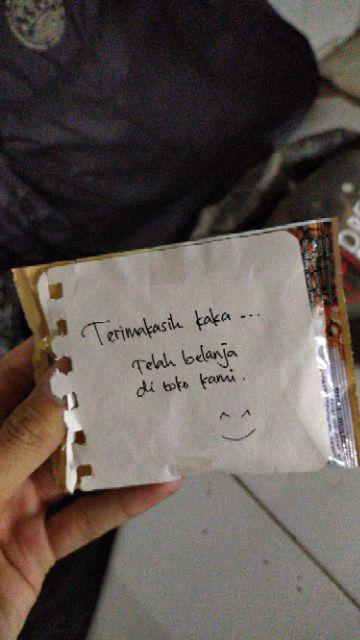 Terimakasih kaka ...
Telah belanja
di toko kami.